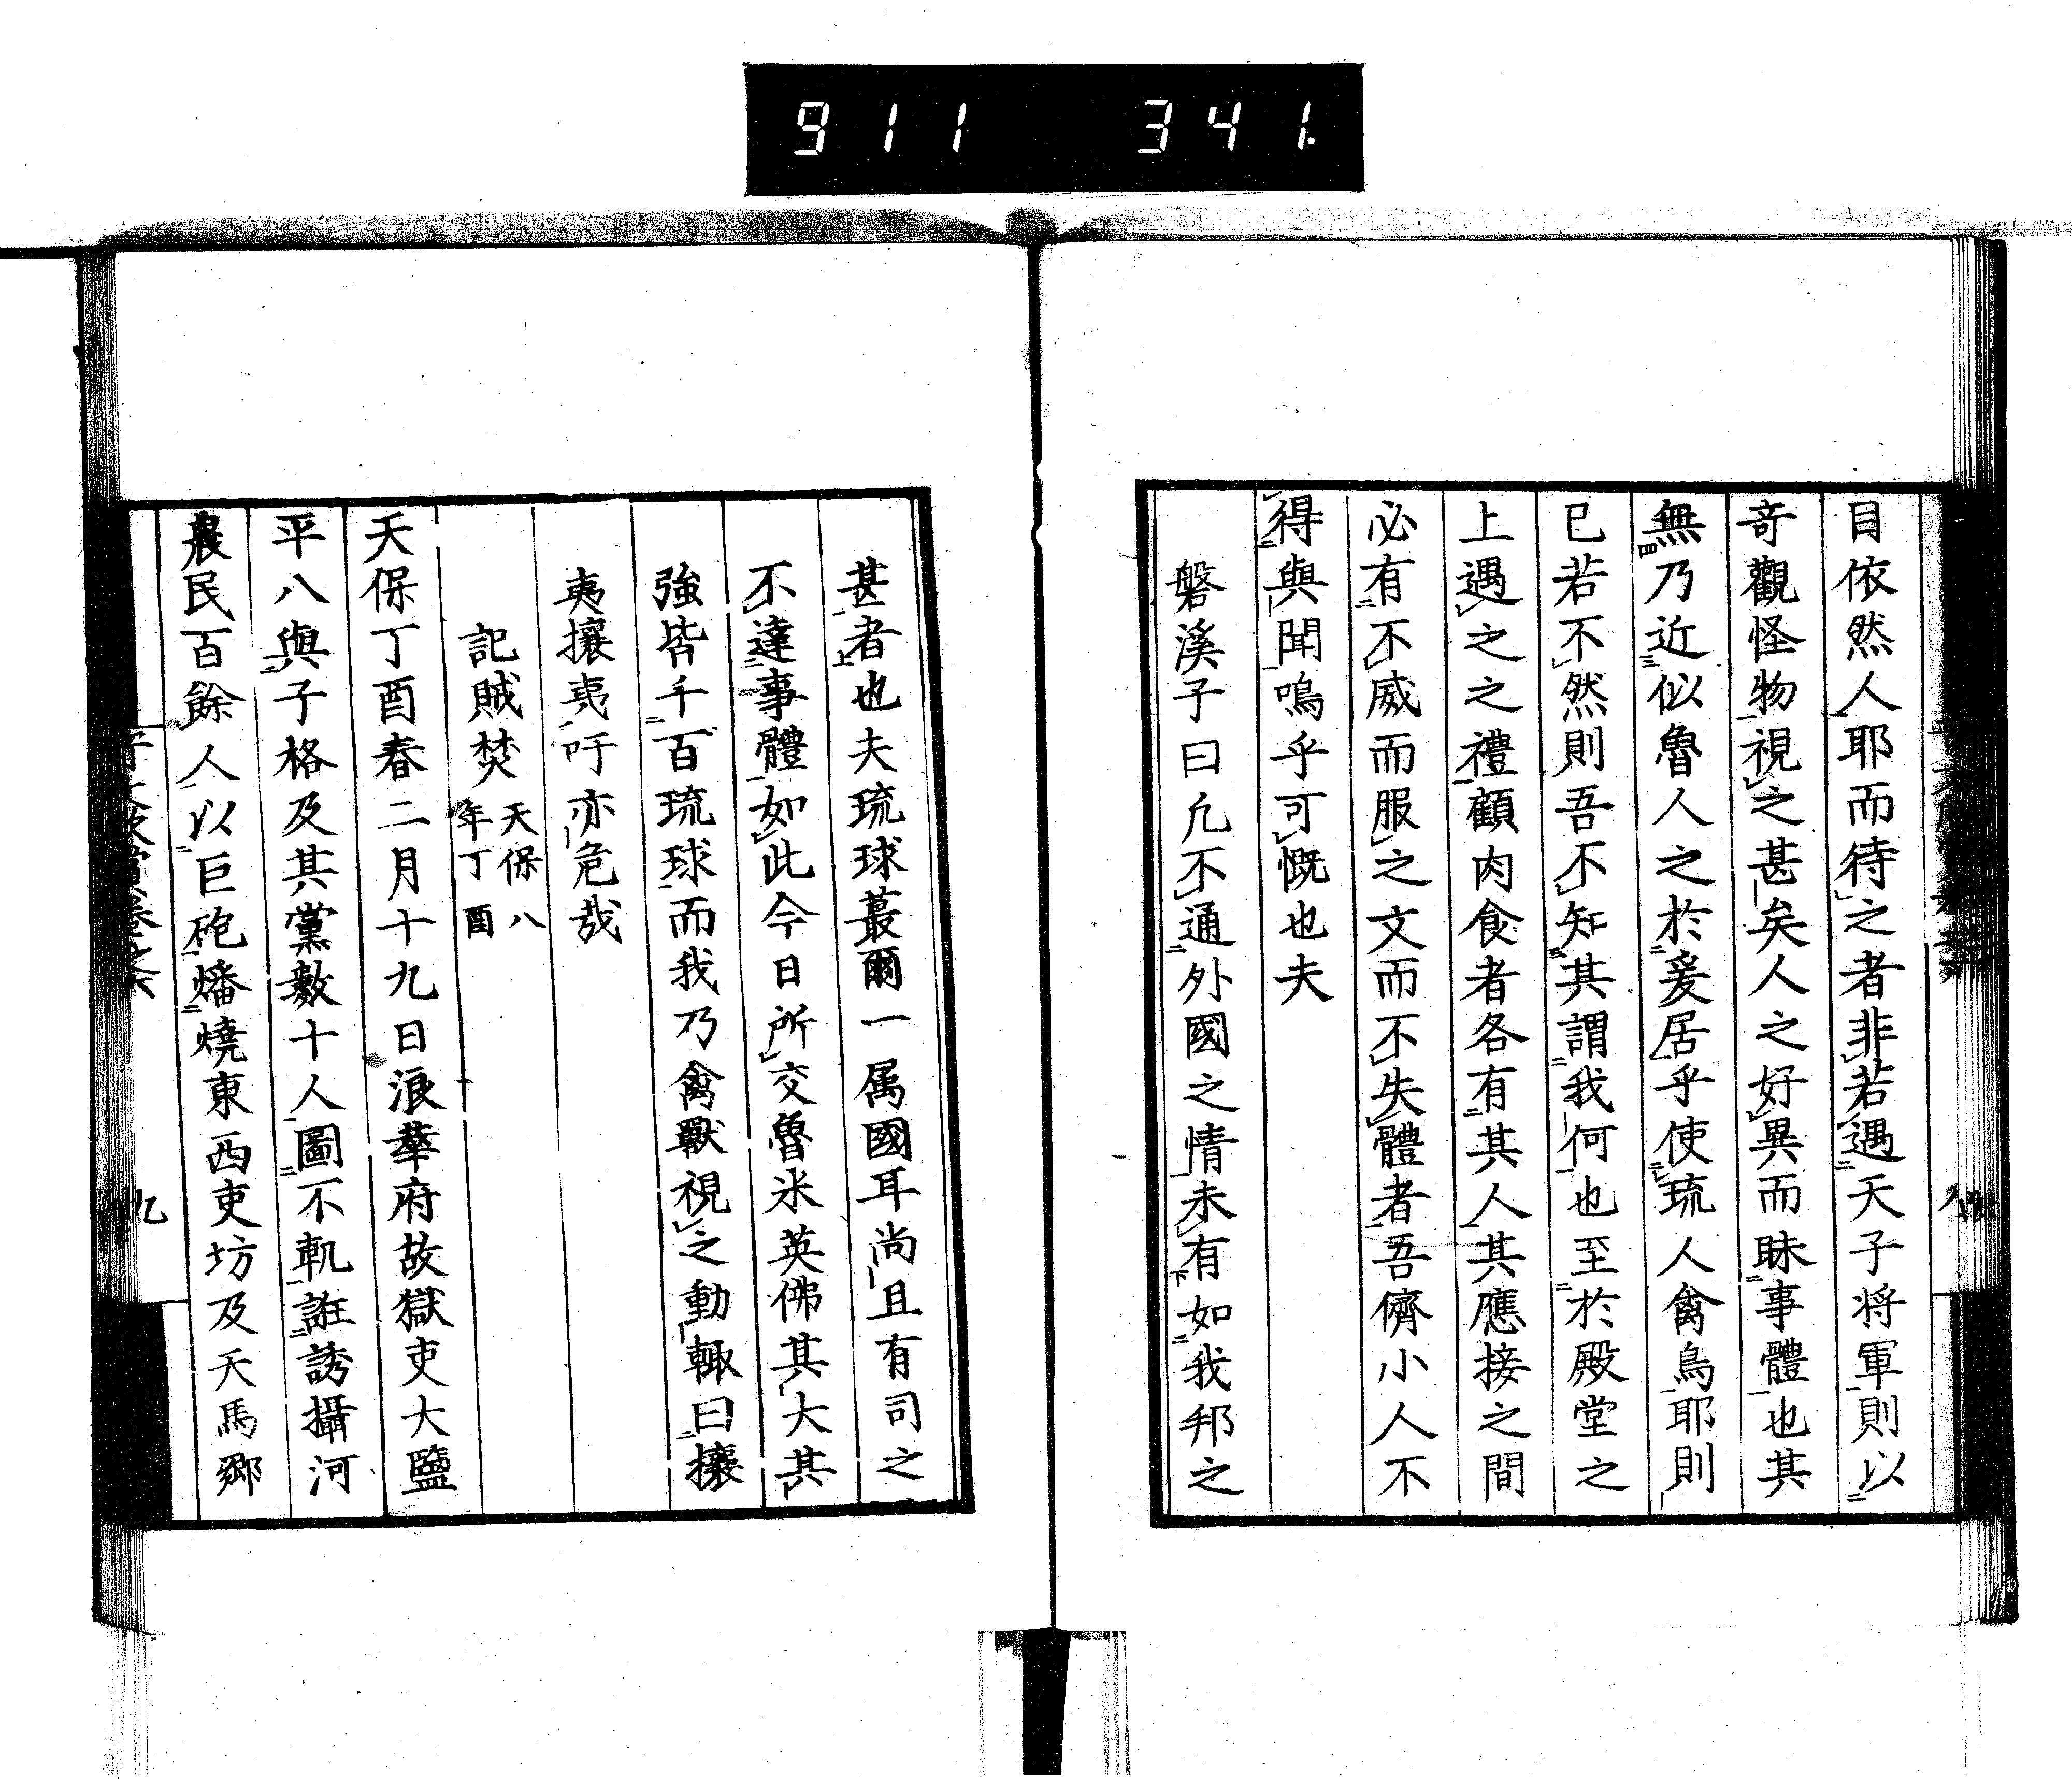 911 341.
目依然人耶而待之者非若遇天子将軍則以
竒觀怪物視之甚矣人之好異而昧事體也其
無乃近似魯人之於爰居乎使琉人禽鳥耶則
已若不然則吾不知其謂我何也至於殿堂之
上遇之之禮顧肉食者各有其人其應接之間
必有不威而服之文而不失體者吾儕小人不
得與聞嗚乎可慨也夫
磐溪子曰凢不通外國之情未有如我邦之
甚者也夫琉球蕞爾一属國耳尚且有司之
不達事體如此今日所交魯米英佛其大其
強皆千百琉球而我乃禽獸視之動輙曰攘
夷攘夷吁亦危哉
記賊焚 天保八年丁酉
天保丁酉春二月十九日浪華府故獄吏大鹽
平八與子格及其黨數十人圖不軌誑誘攝河
農民百餘人以巨砲燔燒東西吏坊及天馬郷
九